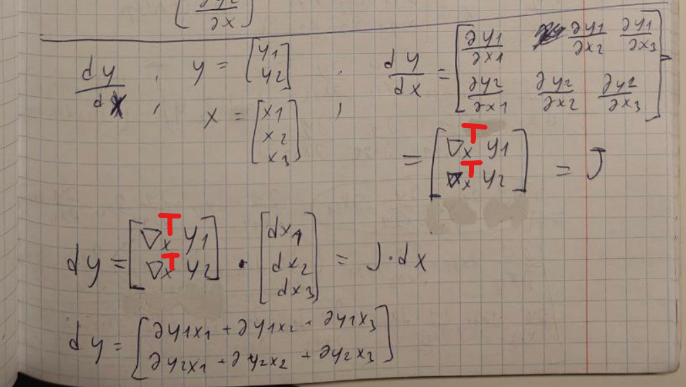 ∂y2
∂x
dy/dx , y = [y1 y2] , dy/dx = [∂y1/∂x1 ∂y1/∂x2 ∂y1/∂x3
x = [x1 x2 x3] , ∂y2/∂x1 ∂y2/∂x2 ∂y2/∂x3]
= [∇x^T y1
∇x^T y2] = J
dy = [∇x^T y1 ∇x^T y2] · [dx1 dx2 dx3] = J·dx
dy = [∂y1x1 + ∂y1x2 + ∂y1x3
∂y2x1 + ∂y2x2 + ∂y2x3]